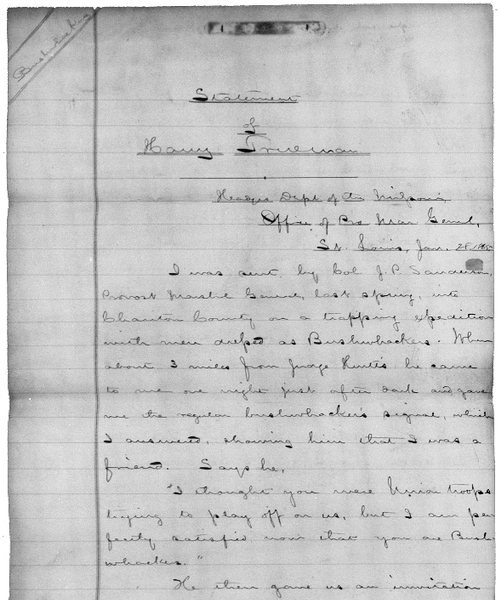 Bushwhackers
Statement
of
Harry Truman
Headqrs Dept of the Missouri,
Office of Pro Mar Genl,
St. Louis, Jan. 28, 1865
I was sent by Col J. P. Sanderson,
Provost Marshl General, last spring, into
Chariton County on a trapping expedition
with men dressed as Bushwhackers. When
about 3 miles from Judge he came
to me one night just after dark and gave
me the regular bushwhackers signal, which
I answered, showing him that I was a
friend. Says he,
"I thought you were Union troops
trying to play off on us, but I am per
fectly satisfied now that you are Bush-
whackers."
He then gave us an invitation